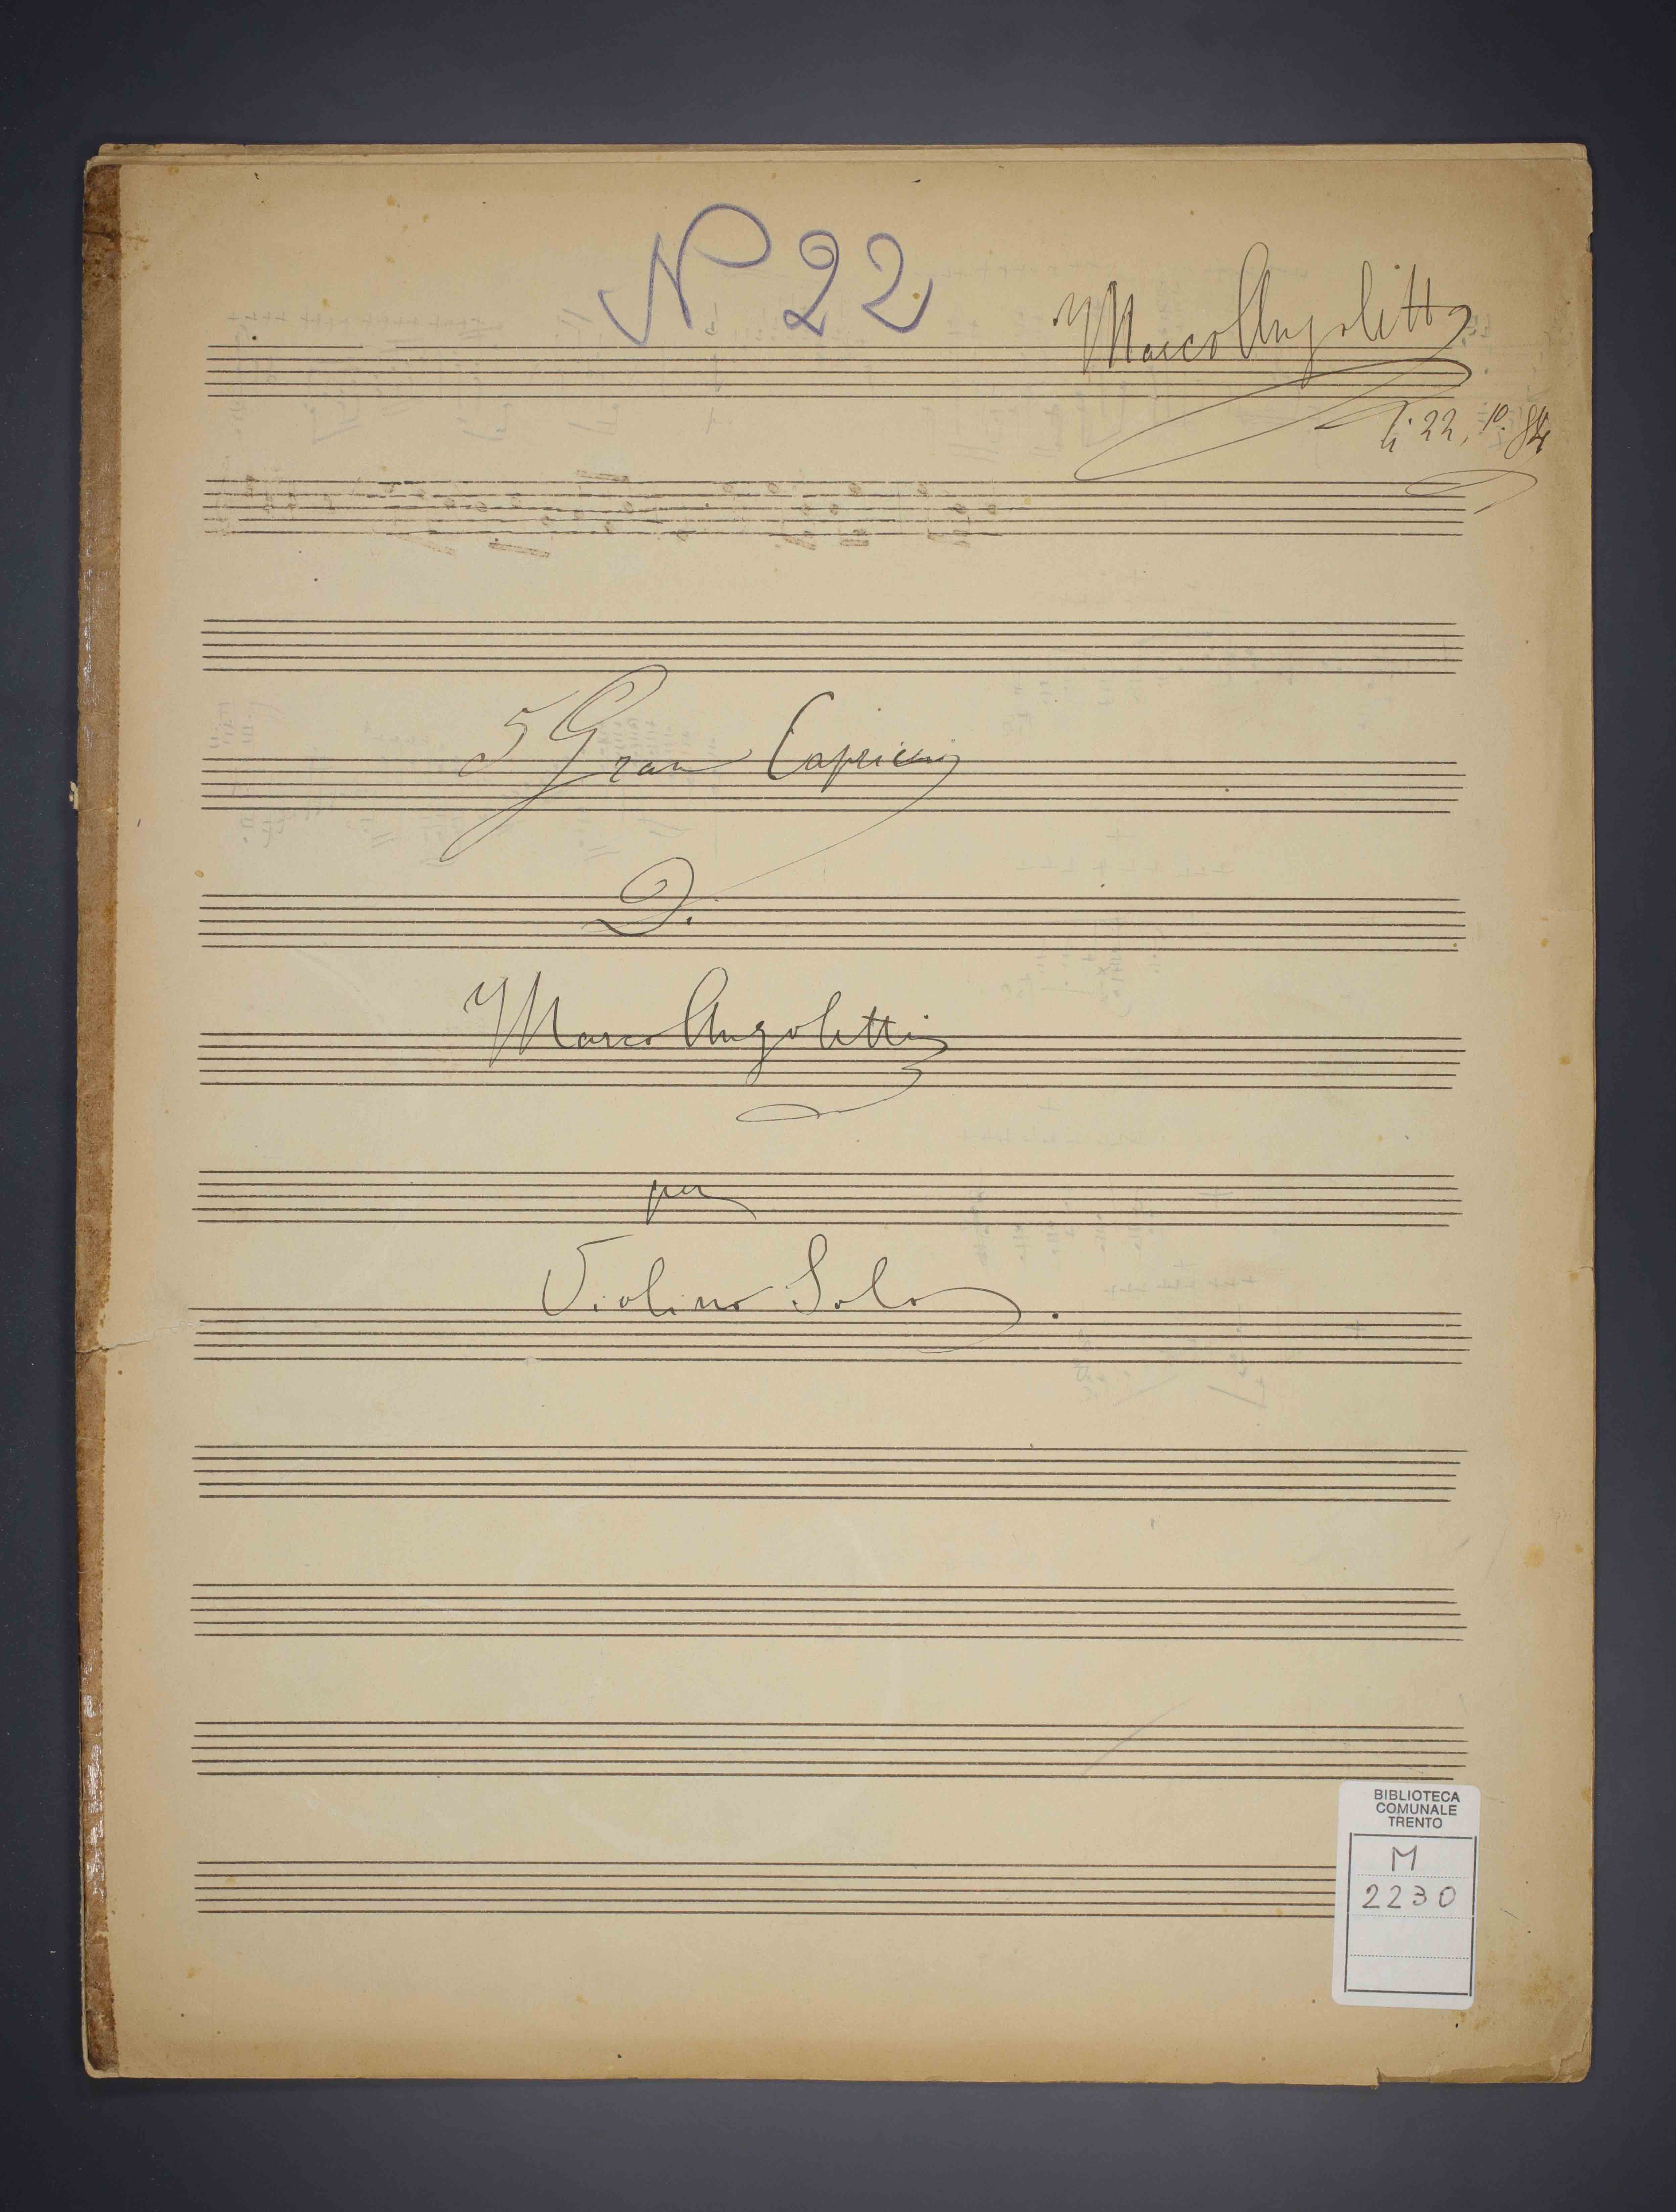 N 22
Marco Anzoletti
li 22. 10. 84
5 Gran Capricci
Di
Marco Anzoletti
per
Violino Solo.
BIBLIOTECA
COMUNALE
TRENTO
M
2230